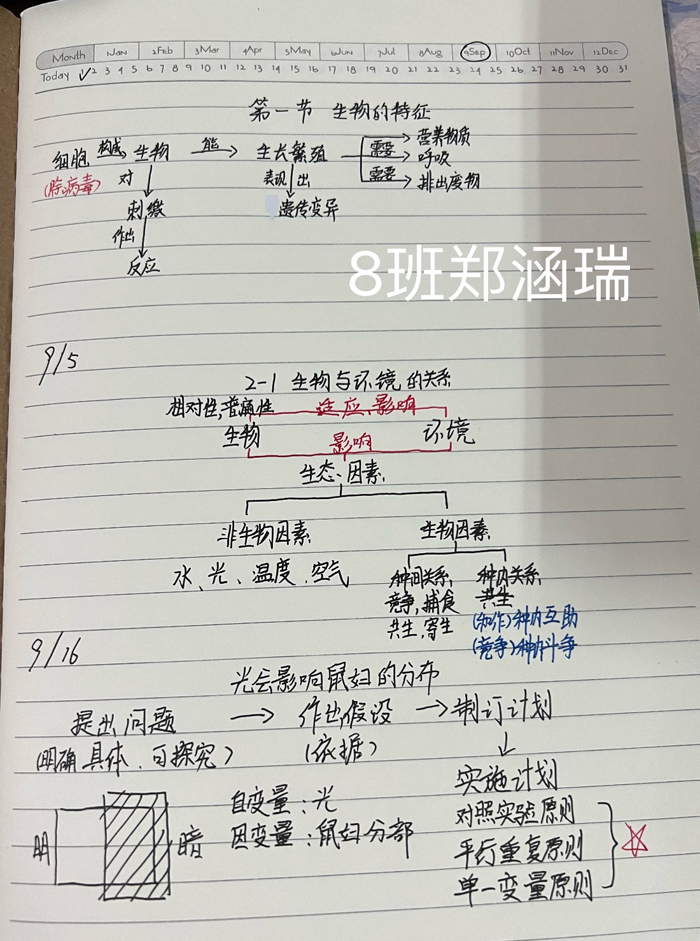 Month 1Jan 2Feb 3Mar 4Apr 5May 6Jun 7Jul 8Aug 9Sep 10Oct 11Nov 12Dec
Today 2 3 4 5 6 7 8 9 10 11 12 13 14 15 16 17 18 19 20 21 22 23 24 25 26 27 28 29 30 31
第一节 生物的特征
细胞 构成 生物 能 生长繁殖 需要 营养物质
呼吸
(除病毒) 对 表现 出 需要 排出废物
刺激 遗传变异
作出
反应
8班郑涵瑞
9/5
2-1 生物与环境的关系
相对性,普遍性 适应,影响
生物 影响 环境
生态因素
非生物因素 生物因素
水、光、温度、空气 种间关系 种内关系
竞争,捕食 共生
共生,寄生 (合作)种内互助
(竞争)种内斗争
9/16
光会影响鼠妇的分布
提出问题 → 作出假设 → 制订计划
(明确 具体、可探究) (依据)
实施计划
明 暗 自变量:光 对照实验原则
因变量:鼠妇分部 平行重复原则
单一变量原则